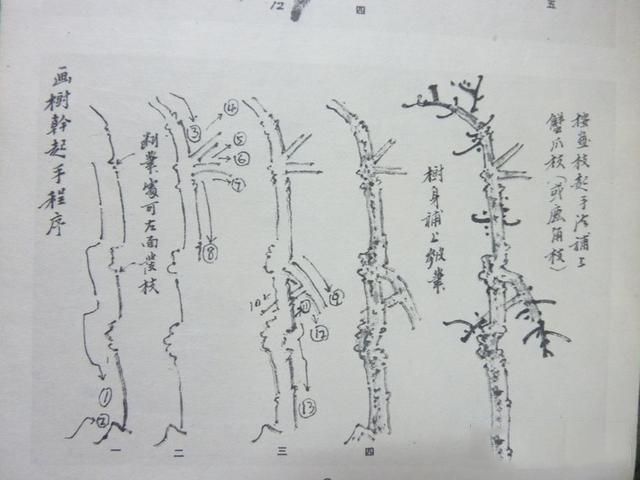 12
四
五
画樹幹起手程序
刿業處可左面發枝
①
②
一
③
④
⑤
⑥
⑦
⑧
二
10
⑪
⑨
⑫
⑬
三
樹身補上皴業
四
按画枝起手法補上
蟹爪枝（或鹿角枝）